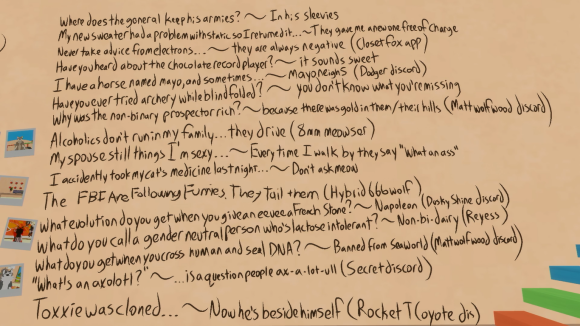 Where does the goneral keep his armies? ~ In his sleevies
My new sweater had a problem with static, so I returned it...~ They gave me a new one free of Charge
Never take advice from electrons... ~ they are always negative (Closet fox app)
Have you heard about the chocolate record player? ~ it sounds sweet
I have a horse named mayo, and sometimes... ~ Mayo neighs (Dodger discord)
Have you ever tried archery while blind folded? ~ you don't know what you're missing
Why was the non-binary prospector rich? ~ because there was gold in them/their hills (Matt wolfwood discord)
Alcoholics don't run in my family... they drive (8mm meowsar)
My spouse still things I'm sexy... ~ Every time I walk by they say "What an ass"
I accidently took my cat's medicine last night... ~ Don't ask meow
The FBI Are Following Furries. They Tail them (Hybrid 666 wolf)
What evolution do you get when you give an eevee a French Stone? ~ Napoleon (Dusky Shine discord)
What do you call a gender neutral person who's lactose intolerant? ~ Non-bi-dairy (Reyess)
What do you get when you cross human and seal DNA? ~ Banned from Seaworld (Matt wolfwood discord)
"What's an axolotl?" ~ ...is a question people ax-a-lot-ull (Secret discord)
Toxxie was cloned... ~ Now he's beside himself (Rocket T Coyote dis)